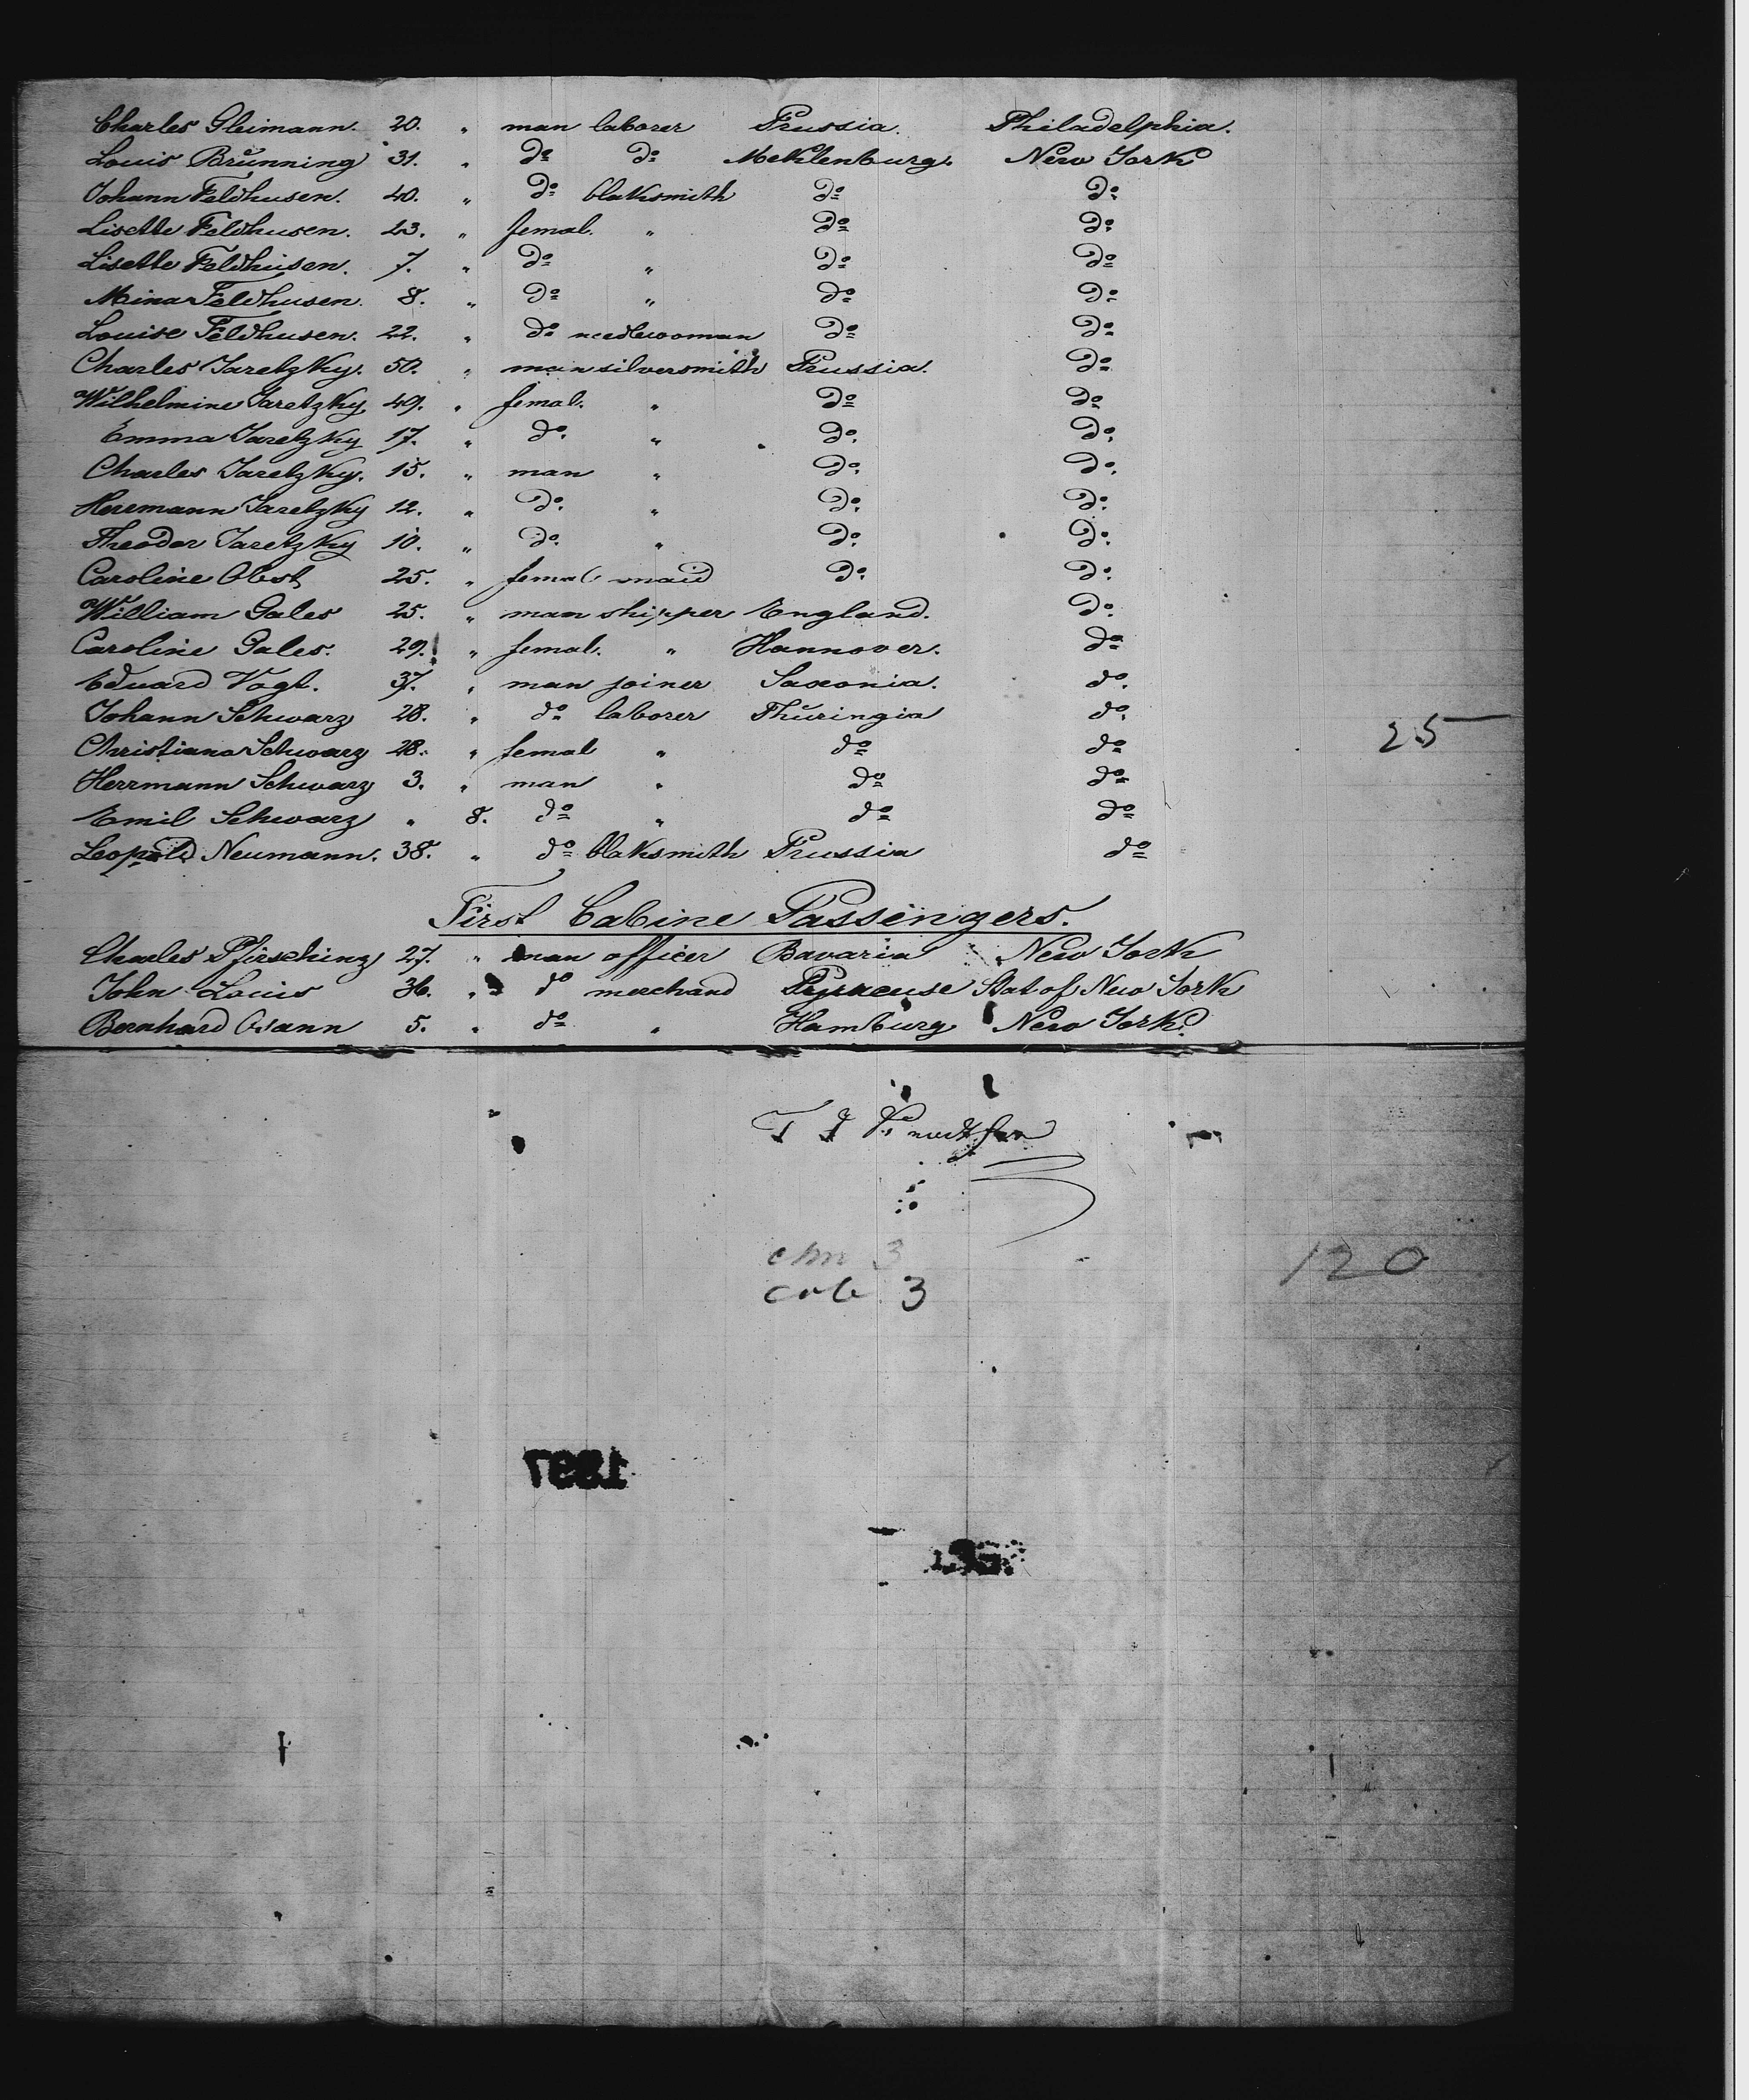 Charles Gleimann. 20. " man laborer Prussia. Philadelphia.
Louis Brünning 31. " do do Meklenburg. New York
Johann Feldhusen. 40. " do blaksmith do do
Lisette Feldhusen. 23. " femal. " do do
Lisette Feldhusen. 7. " do " do do
Mina Feldhusen. 8. " do " do do
Louise Feldhusen. 22. " do needlewoman do do
Charles Jaretzky. 50. " man silversmith Prussia. do
Wilhelmine Jaretzky 49. " femal. " do do
Emma Jaretzky 17. " do. " do. do.
Charles Jaretzky. 15. " man " do. do.
Herrmann Jaretzky 12. " do. " do. do.
Theodor Jaretzky 10. " do. " do. do.
Caroline Obst 25. " femal maid do. do.
William Gales 25. " man shipper England. do.
Caroline Gales. 29. " femal. " Hannover. do
Eduard Vogt. 37. " man joiner Saxonia. do.
Johann Schwarz 28. " do laborer Thüringia do.
Christiana Schwarz 28. " femal " do do 25
Herrmann Schwarz 3. " man " do do
Emil Schwarz " 8. do " do do
Leopold Neumann. 38. " do blaksmith Prussia do
First Cabine Passengers.
Charles Pfirsching 27. " man officer Bavaria New York
John Louis 36. " do merchand Syracuse Stat of New York
Bernhard Osann 5. " do " Hamburg New York.
3
cab. 3
120
1397